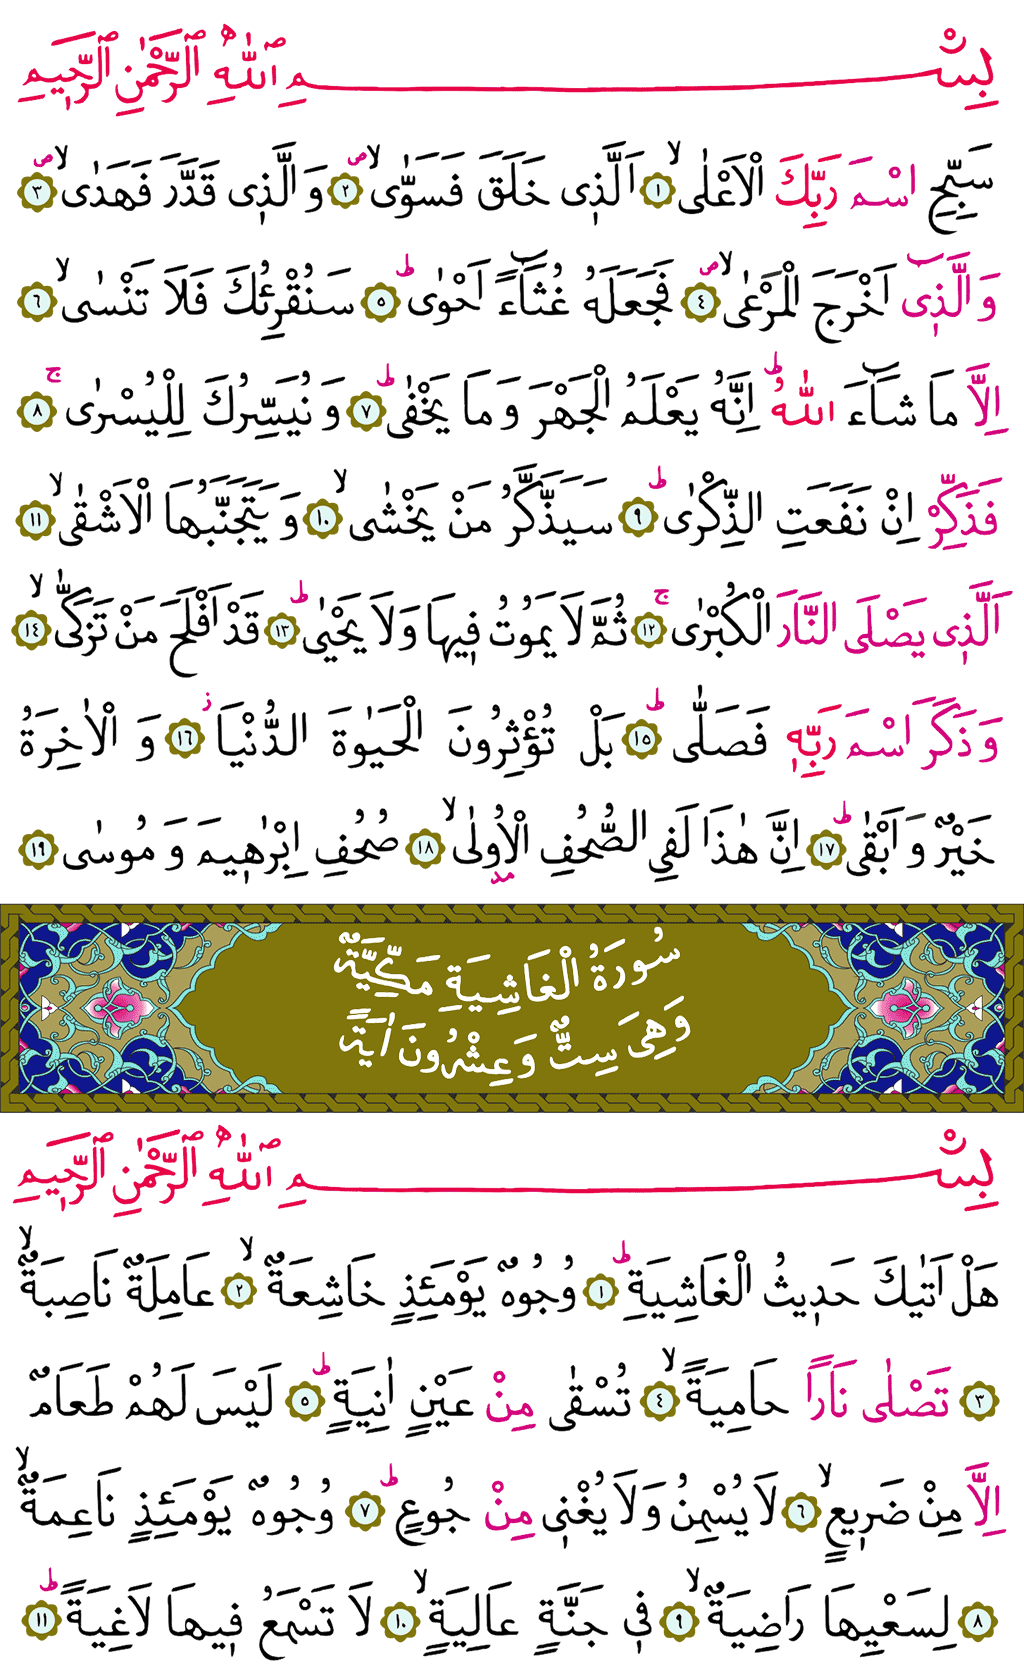 بِسْمِ ٱللّٰهِ ٱلرَّحْمٰنِ ٱلرَّحِيمِ
سَبِّحِ اسْمَ رَبِّكَ الْاَعْلٰىۙ ١ اَلَّذ۪ى خَلَقَ فَسَوّٰىۙۖ ٢ وَالَّذ۪ى قَدَّرَ فَهَدٰىۙۖ ٣
وَالَّذ۪ٓى اَخْرَجَ الْمَرْعٰىۙۖ ٤ فَجَعَلَهُ غُثَٓاءً اَحْوٰىۜ ٥ سَنُقْرِئُكَ فَلَا تَنْسٰىۙ ٦
اِلَّا مَا شَٓاءَ اللّٰهُۜ اِنَّهُ يَعْلَمُ الْجَهْرَ وَمَا يَخْفٰىۜ ٧ وَنُيَسِّرُكَ لِلْيُسْرٰىۚ ٨
فَذَكِّرْ اِنْ نَفَعَتِ الذِّكْرٰىۜ ٩ سَيَذَّكَّرُ مَنْ يَخْشٰىۙ ١٠ وَيَتَجَنَّبُهَا الْاَشْقٰىۙ ١١
اَلَّذ۪ى يَصْلَى النَّارَ الْكُبْرٰىۚ ١٢ ثُمَّ لَا يَمُوتُ ف۪يهَا وَلَا يَحْيٰىۜ ١٣ قَدْ اَفْلَحَ مَنْ تَزَكّٰىۙ ١٤
وَذَكَرَ اسْمَ رَبِّه۪ فَصَلّٰىۜ ١٥ بَلْ تُؤْثِرُونَ الْحَيٰوةَ الدُّنْيَاۘ ١٦ وَالْاٰخِرَةُ
خَيْرٌ وَاَبْقٰىۜ ١٧ اِنَّ هٰذَا لَفِى الصُّحُفِ الْاُو۫لٰىۙ ١٨ صُحُفِ اِبْرٰه۪يمَ وَمُوسٰى ١٩
سُورَةُ الْغَاشِيَةِ مَكِّيَّةٌ
وَهِىَ سِتٌّ وَعِشْرُونَ اٰيَةً
بِسْمِ ٱللّٰهِ ٱلرَّحْمٰنِ ٱلرَّحِيمِ
هَلْ اَتٰيكَ حَد۪يثُ الْغَاشِيَةِۜ ١ وُجُوهٌ يَوْمَئِذٍ خَاشِعَةٌۙ ٢ عَامِلَةٌ نَاصِبَةٌۙ
٣ تَصْلٰى نَارًا حَامِيَةًۙ ٤ تُسْقٰى مِنْ عَيْنٍ اٰنِيَةٍۜ ٥ لَيْسَ لَهُمْ طَعَامٌ
اِلَّا مِنْ ضَر۪يعٍۙ ٦ لَا يُسْمِنُ وَلَا يُغْن۪ى مِنْ جُوعٍۜ ٧ وُجُوهٌ يَوْمَئِذٍ نَاعِمَةٌۙ
٨ لِسَعْيِهَا رَاضِيَةٌۙ ٩ ف۪ى جَنَّةٍ عَالِيَةٍۙ ١٠ لَا تَسْمَعُ ف۪يهَا لَاغِيَةًۜ ١١